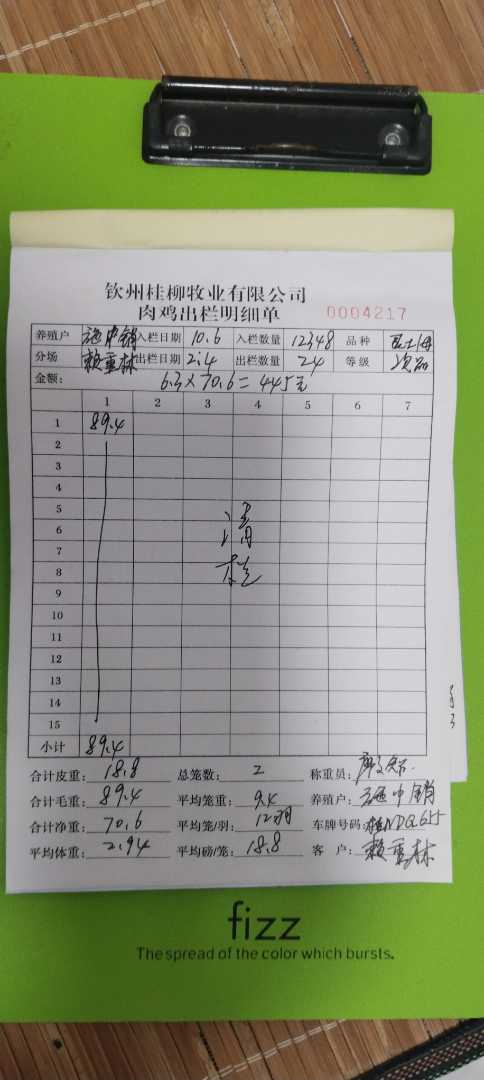 钦州桂柳牧业有限公司
肉鸡出栏明细单 0004217
养殖户 施中销 入栏日期 10.6 入栏数量 12348 品种
分场 赖重林 出栏日期 2.4 出栏数量 24 等级 次品
金额: 6.3×70.6=445元
1 2 3 4 5 6 7
1 89.4
2
3
4
5
6
7
8
9
10
11
12
13
14
15
清栏
小计 89.4
合计皮重: 18.8 总笼数: 2 称重员:
合计毛重: 89.4 平均笼重: 9.4 养殖户: 施中销
合计净重: 70.6 平均笼/羽: 12羽 车牌号码: 桂NDQ655
平均体重: 2.94 平均磅/笼: 18.8 客户: 赖重林
fizz
The spread of the color which bursts.